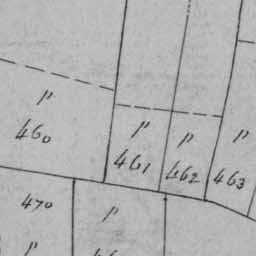 p
460
p
461
p
462
p
463
470
p
p